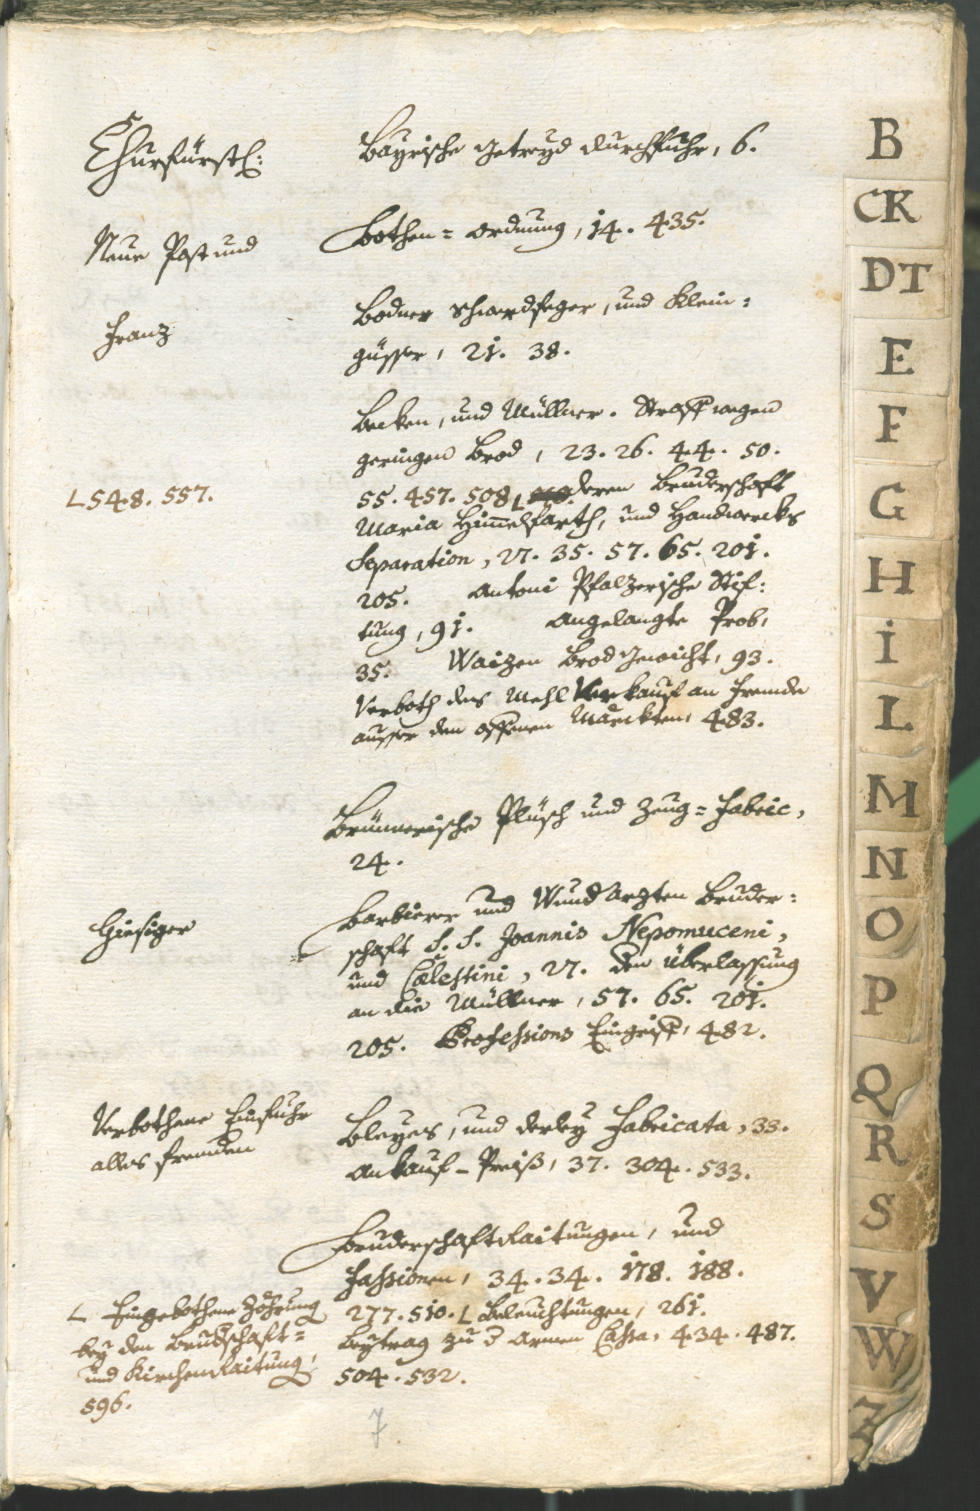 Churfürstl: Bayrische Getreyd Durchfuhr, 6.
Neue Post und Bothen= Ordnung, 14. 435.
Franz Bodner Schwerdfeger, und Klein=
güsser, 21. 38.
Becken, und Müllner. Straff wegen
geringen Brod, 23. 26. 44. 50.
55. 457. 508 L deren Bruderschaft
L 548. 557.
Maria Himmelfarth, und Handwercks
Separation, 27. 35. 57. 65. 201.
205. Antoni Pfalzerische Stif:
tung, 91. Angelangte Prob,
35. Waitzen Brod Gewicht, 93.
Verboth des Mehl Verkauf an Fremde
ausser den offenen Märckten, 483.
Brünnerische Plüsch und Zeug=Fabric,
24.
Hiesiger Barbierer und Wund Arzten Bruder:
schaft S. S. Joannis Nepomuceni,
und Cælestini, 27. den Überlassung
an die Müllner, 57. 65. 201.
205. Professions Eingriff, 482.
Verbothene Einfuhr
alles fremden
Bleyes, und derley Fabricata, 33.
Ankauf-Preiß, 37. 304. 533.
Bruderschaft Raitungen, und
Fassionen, 34. 34. 178. 188.
277. 510. L Beleuchtungen, 261.
Beytrag zu d Armen Cassa, 434. 487.
504. 532.
L Eingebothene Zöhrung
bey den Brudschaft=
und Kirchen Raitung,
596.
7
B
CK
DT
E
F
G
H
I
L
M
N
O
P
Q
R
S
V
W
Z